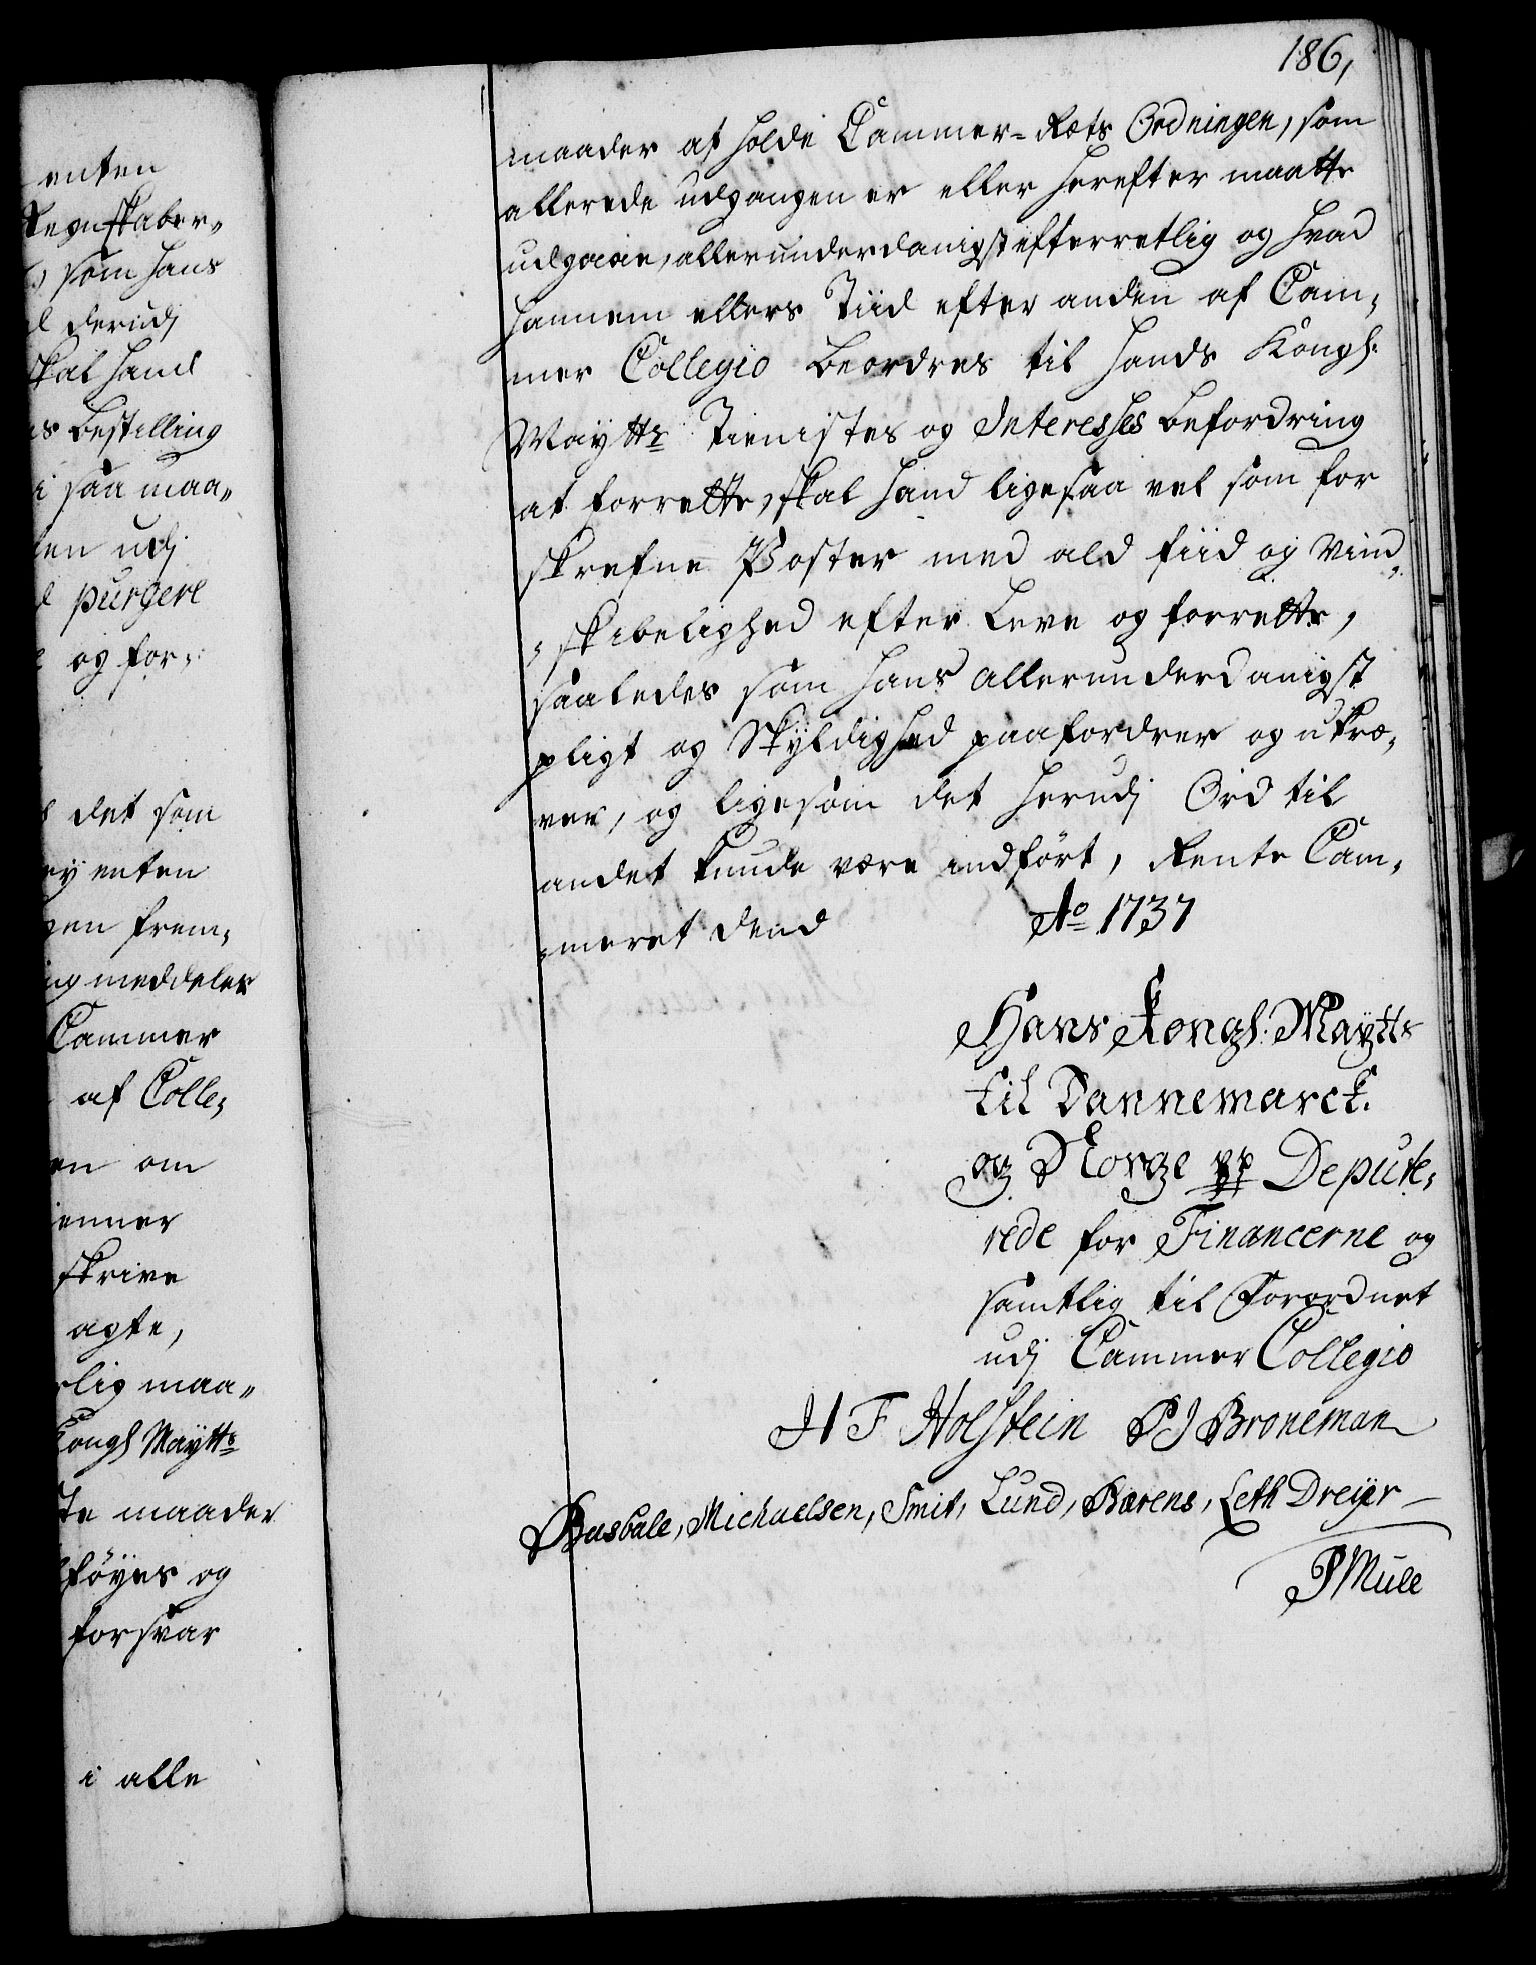 186,
maader af holde Cammer-Rets Ordningen, som
allerede udgangen er eller herefter maatte
udgaae, allerunderdanigst efterretlig og hvad
hannem ellers Tiid efter anden af Cam,
mer Collegio beordres til hands Kongl.
Maytts Tienistes og Interesses befordring
at forrette, skal hand ligesaa vel som for
skrefne Poster med ald fliid og Vind,
,skibelighed efter Leve og forrette,
saaledes som hans allerunderdanigst
pligt og Skyldighed paafordrer og udkræ,
ver, og ligesom det herudj Ord til
andet kunde være indført, Rente Cam,
,meret dend Ao 1737
Hans Kongl. Maytts
til Dannemarck.
og Norge pp Depute,
rede for Financerne og
samtlig til Forordnet
udj Cammer Collegio
H F Holstein P J Broneman
Busbale, Michaelsen, Smit, Lund, Bærens, Leth Dreyer
P Mule
enten
Regnskaber,,
som hans
derudj
skal hand
bestilling
i saa maa,,
udj
purgere
og for,,
det som
ey enten
gen frem,
meddeler
Cammer
af Colle,
om
skrive
agte,
lig maa,,
Kongl Maytts
te maader
føyes og
forsvar
i alle